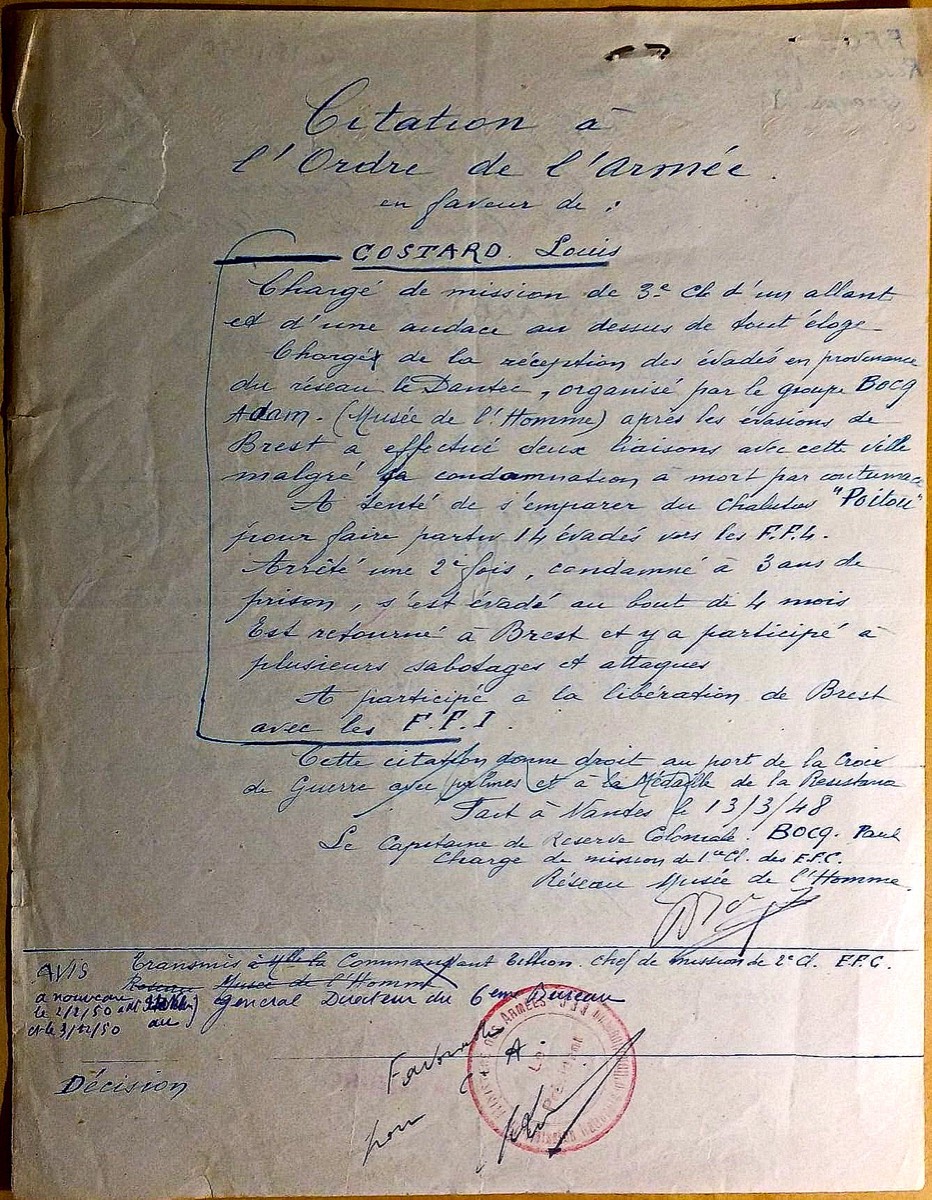 Citation à
l'Ordre de l'Armée.
en faveur de :
COSTARD. Louis
Chargé de mission de 3e Cl d'un allant
et d'une audace au dessus de tout éloge
Chargé de la réception des évadés en provenance
du réseau le Dantec, organisé par le groupe BOCQ
Adam. (Musée de l'Homme) après les évasions de
Brest a effectué deux liaisons avec cette ville
malgré sa condamnation à mort par contumace
A tenté de s'emparer du chalutier "Poitou"
pour faire partir 14 évadés vers les F.F.L.
Arrêté une 2e fois, condamné à 3 ans de
prison, s'est évadé au bout de 4 mois
Est retourné à Brest et y a participé à
plusieurs sabotages et attaques
A participé a la libération de Brest
avec les F.F.I.
Cette citation donne droit au port de la Croix
de Guerre avec palmes et à la Médaille de la Resistance
Fait à Nantes le 13/3/48
Le Capitaine de Reserve Coloniale. BOCQ. Paul
Charge de mission de 1ere Cl. des F.F.C.
Réseau Musée de l'Homme.
AVIS Transmis à Mlle la Commandant Tillion. Chef de mission de 2e Cl. F.F.C.
Reseau Musée de l'Homme
a nouveau General Directeur du 6eme Bureau
le 2/2/50
et le 3/12/50 au
Favorable
A.
pour
Le Président
DES ARMÉES
Décision